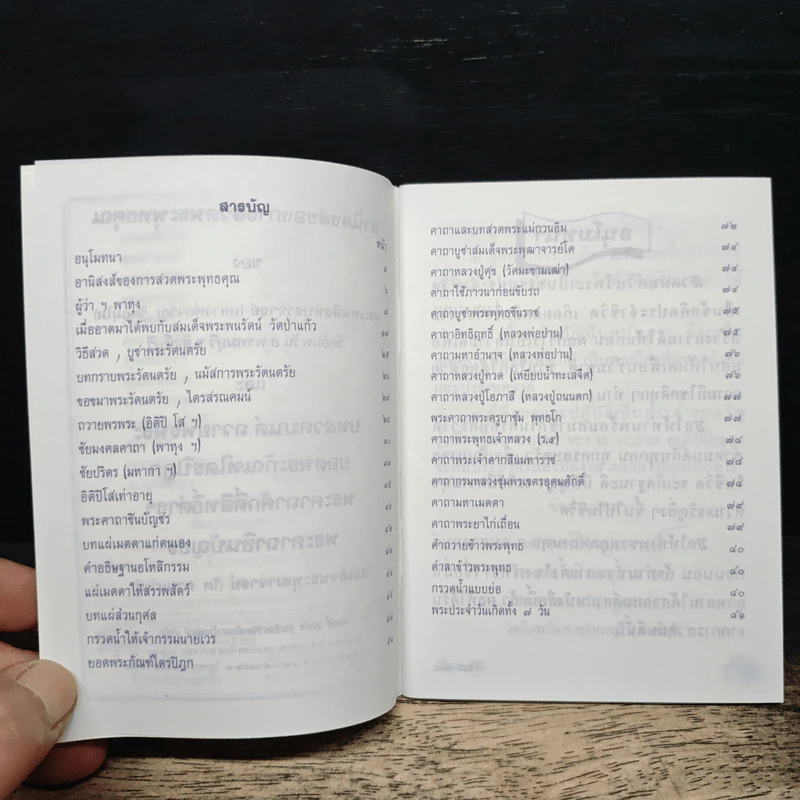 สารบัญ
หน้า
อนุโมทนา ๔
อานิสงส์ของการสวดพระพุทธคุณ ๖
ผู้ว่า ฯ พาหุง ๗
เมื่ออาตมาได้พบกับสมเด็จพระพนรัตน์ วัดป่าแก้ว
วิธีสวด , บูชาพระรัตนตรัย
บทกราบพระรัตนตรัย , นมัสการพระรัตนตรัย
ขอขมาพระรัตนตรัย , ไตรสรณคมน์
ถวายพรพระ (อิติปิ โส ฯ)
ชัยมงคลคาถา (พาหุง ฯ)
ชัยปริตร (มหากา ฯ)
อิติปิโสเท่าอายุ
พระคาถาชินบัญชร
บทแผ่เมตตาแก่ตนเอง
คำอธิษฐานอโหสิกรรม
แผ่เมตตาให้สรรพสัตว์
บทแผ่ส่วนกุศล
กรวดน้ำให้เจ้ากรรมนายเวร
ยอดพระกัณฑ์ไตรปิฎก
คาถาและบทสวดพระแม่กวนอิม ๗๒
คาถาบูชาสมเด็จพระพุฒาจารย์โต ๗๔
คาถาหลวงปู่ศุข (วัดมะขามเฒ่า) ๗๔
คาถาใช้ภาวนาก่อนขับรถ ๗๔
คาถาบูชาพระพุทธชินราช ๗๕
คาถาอิทธิฤทธิ์ (หลวงพ่อปาน) ๗๕
คาถามหาอำนาจ (หลวงพ่อปาน) ๗๖
คาถาหลวงปู่ทวด (เหยียบน้ำทะเลจืด) ๗๖
คาถาหลวงปู่โอภาสี (หลวงปู่ถนนตก) ๗๖
พระคาถาพระครูบาชุ่ม พุทธโก ๗๗
คาถาพระพุทธเจ้าหลวง (ร.๕) ๗๘
คาถาพระเจ้าตากสินมหาราช ๗๘
คาถากรมหลวงชุมพรเขตรอุดมศักดิ์ ๗๘
คาถามหาเมตตา ๗๙
คาถาพระยาไก่เถื่อน ๗๙
คำถวายข้าวพระพุทธ ๘๐
คำลาข้าวพระพุทธ ๘๐
กรวดน้ำแบบย่อ ๘๐
พระประจำวันเกิดทั้ง ๗ วัน ๘๑